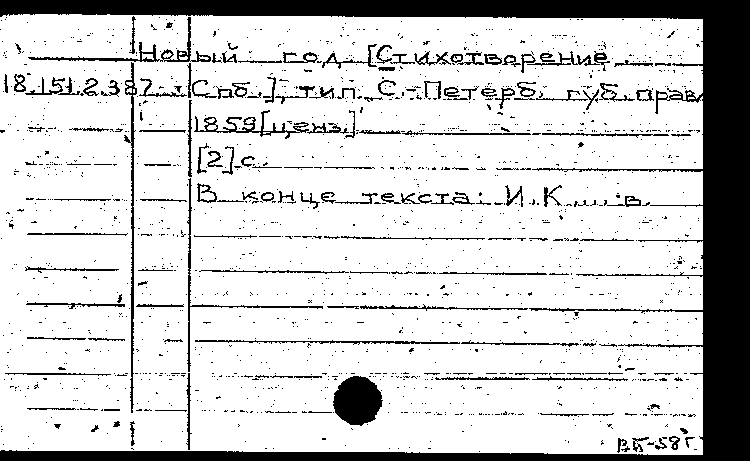 Новый год. [Стихотворение.
18.151.2.387 Спб.], тип. С.-Петерб. губ. прав.
1859 [ценз.]
[2] с.
В конце текста: И.К.....в.
ВБ-58г.